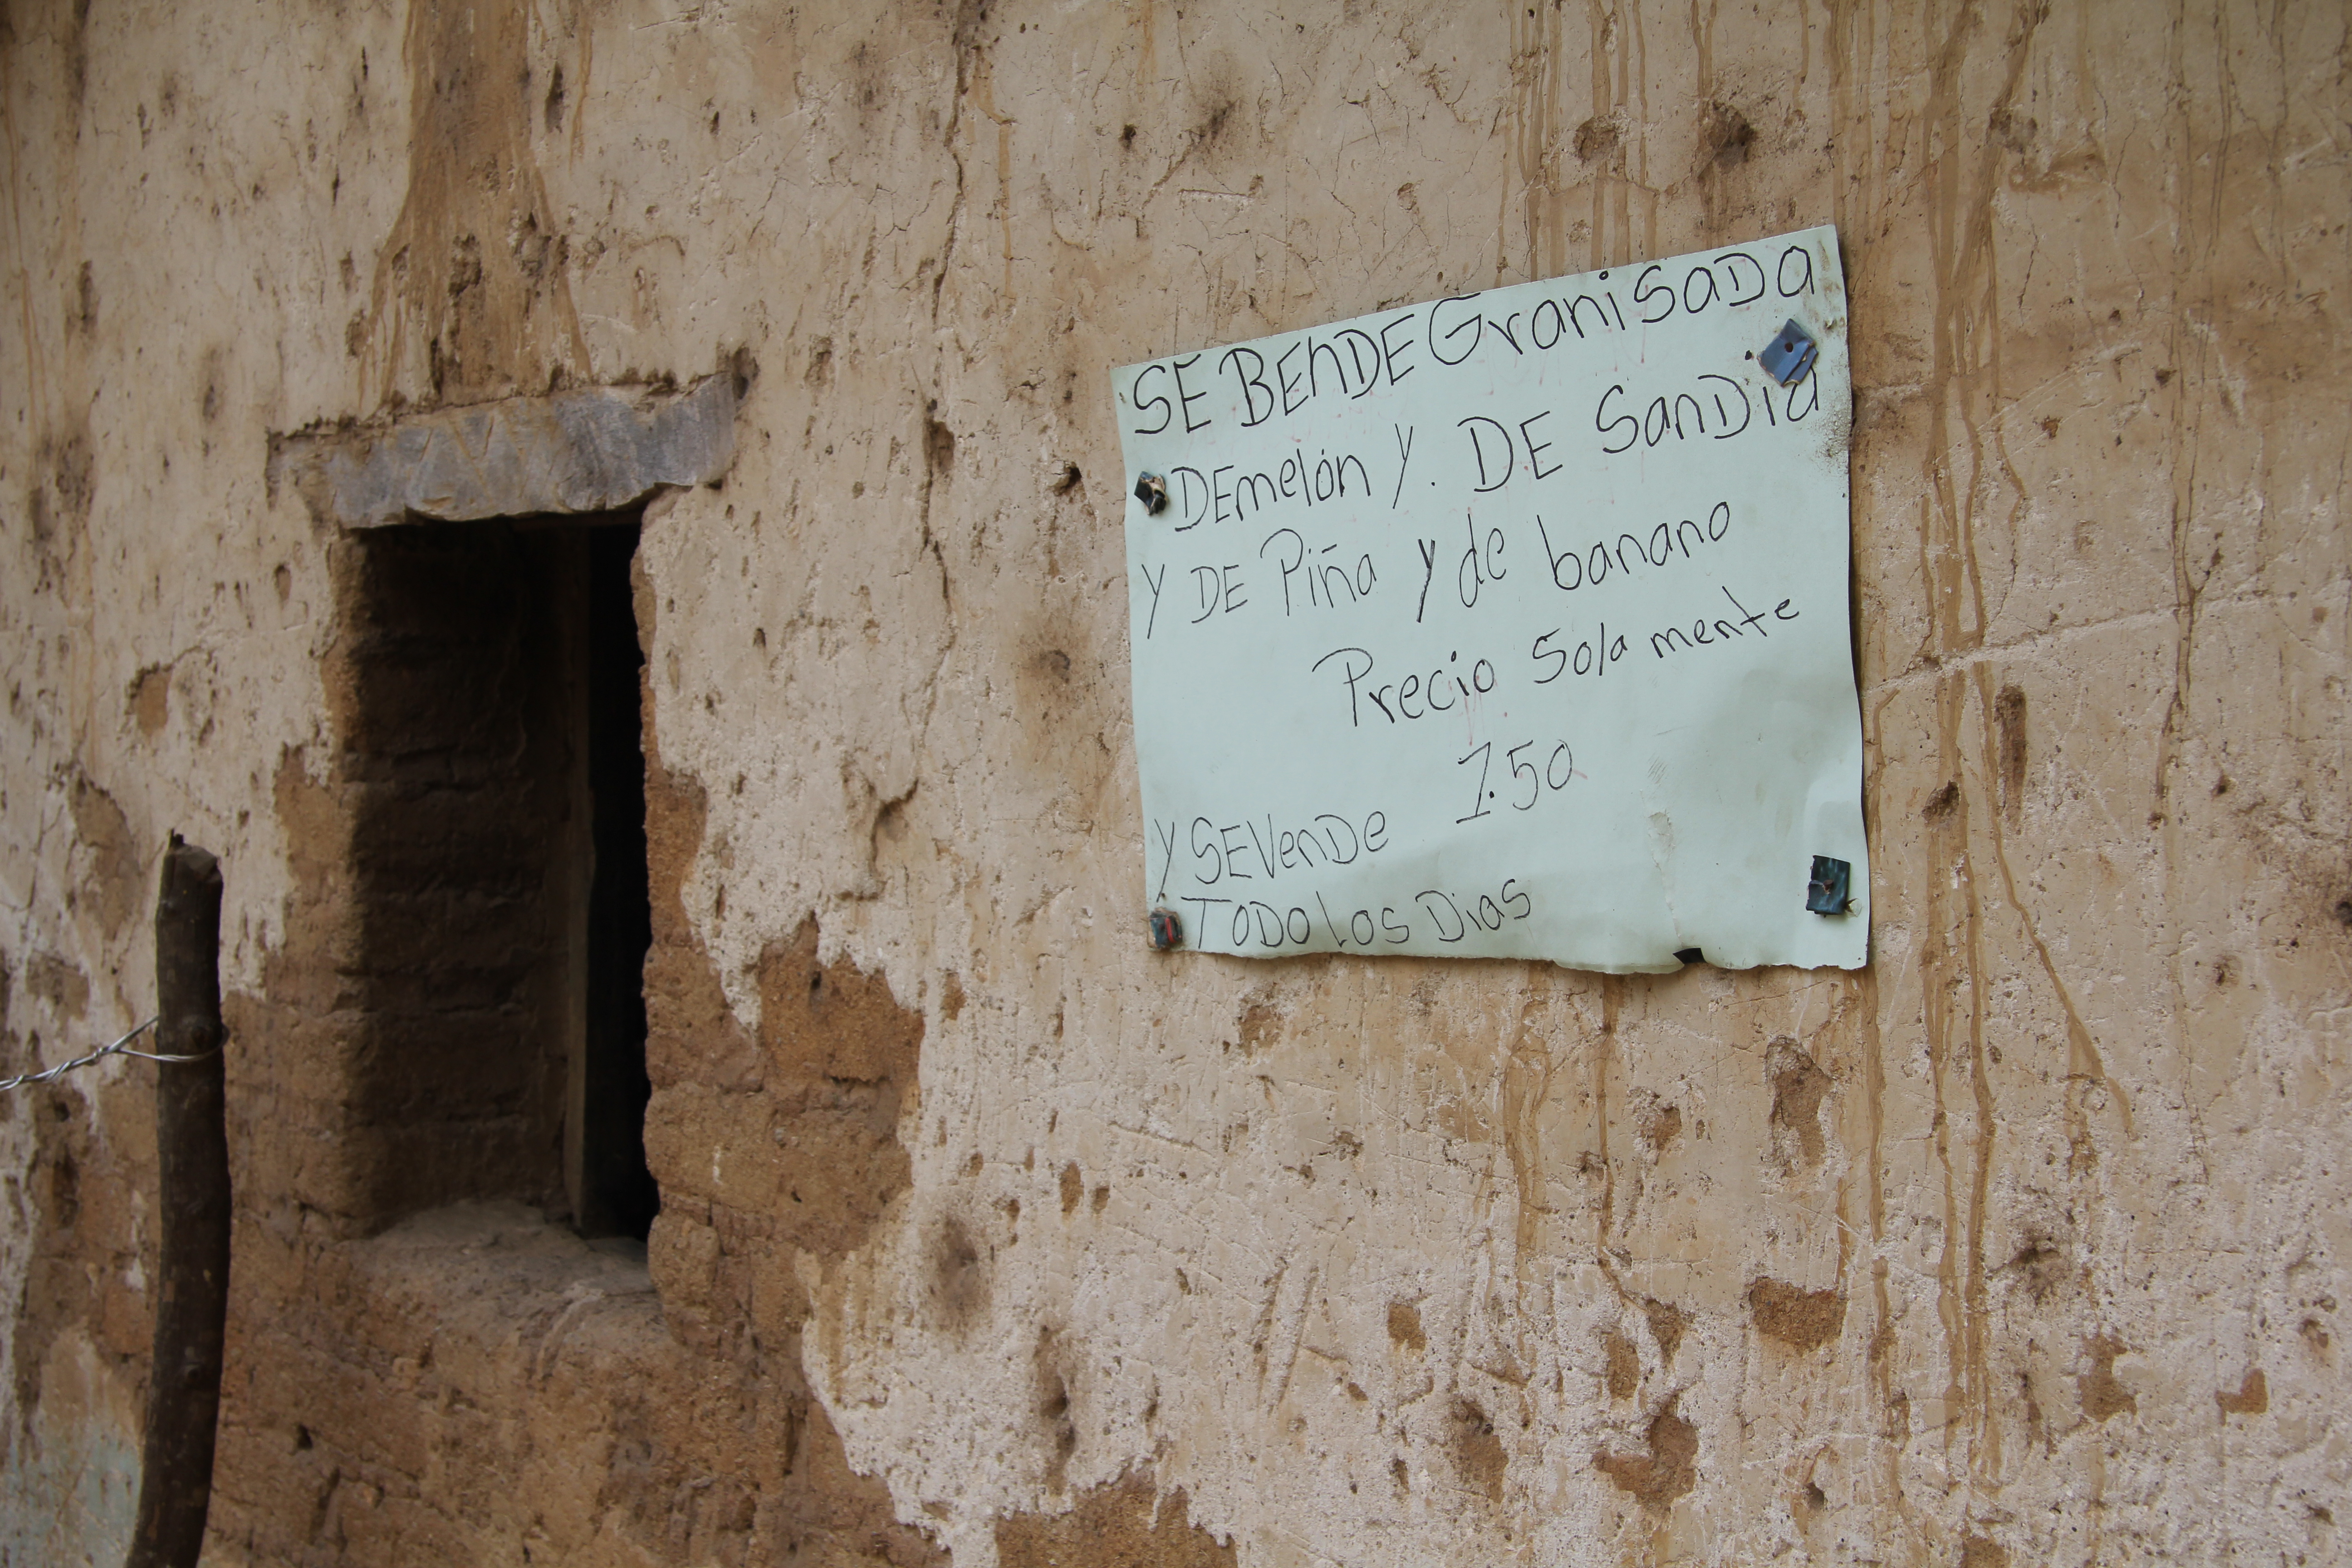 SE BENDE Granisada
DE melón y. DE SanDia
y DE Piña y de banano
Precio Sola mente
1.50
y SE VenDe
TODO Los Dias